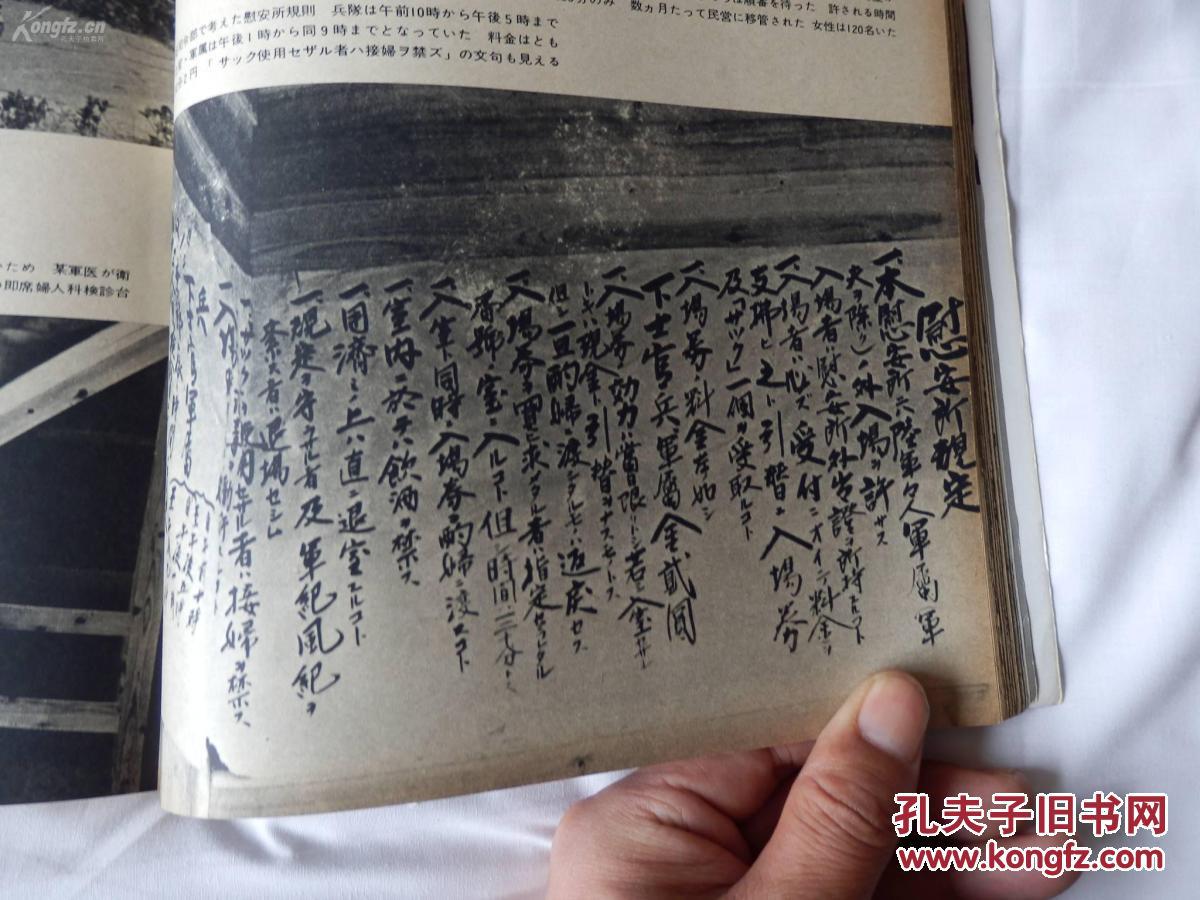 分のみ 数ヵ月たって民営に移管された 女性は120名いた
は順番を待った 許される時間
で考えた慰安所規則 兵隊は午前10時から午後5時まで
軍属は午後1時から同9時までとなっていた 料金はとも
2円 「サック使用セザル者ハ接婦ヲ禁ズ」の文句も見える
ため 某軍医が衛
即席婦人科検診台
慰安所規定
一、本慰安所ニハ陸軍々人軍属軍
夫ヲ除ク)ノ外入場ヲ許サス
入場者ハ慰安所外出證ヲ所持スルコト
一、入場者ハ必ズ受付ニオイテ料金ヲ
支拂ヒ之ト引替ニ入場券
及「サック」一個ヲ受取ルコト
一、入場券ノ料金左ノ如シ
下士官兵軍属金貳圓
一、入場券ノ効力ハ當日限リトシ若シ入室セザル
トキハ現金ト引替ヲナスモノトス
但シ一旦酌婦ニ渡シタルモノハ返戻セス
一、入場券ヲ買ヒ求メタル者ハ指定セラレタル
番號ノ室ニ入ルコト但シ時間ハ三十分トス
一、入室ト同時ニ入場券ヲ酌婦ニ渡スコト
一、室内ニ於テハ飲酒ヲ禁ス
一、用済ミノ上ハ直ニ退室スルコト
一、規定ヲ守ラサル者及軍紀風紀ヲ
紊ス者ハ退場セシム
一、サックヲ使用セサル者ハ接婦ヲ禁ス
一、入場
兵
孔夫子旧书网
www.kongfz.com
Kongfz.cn